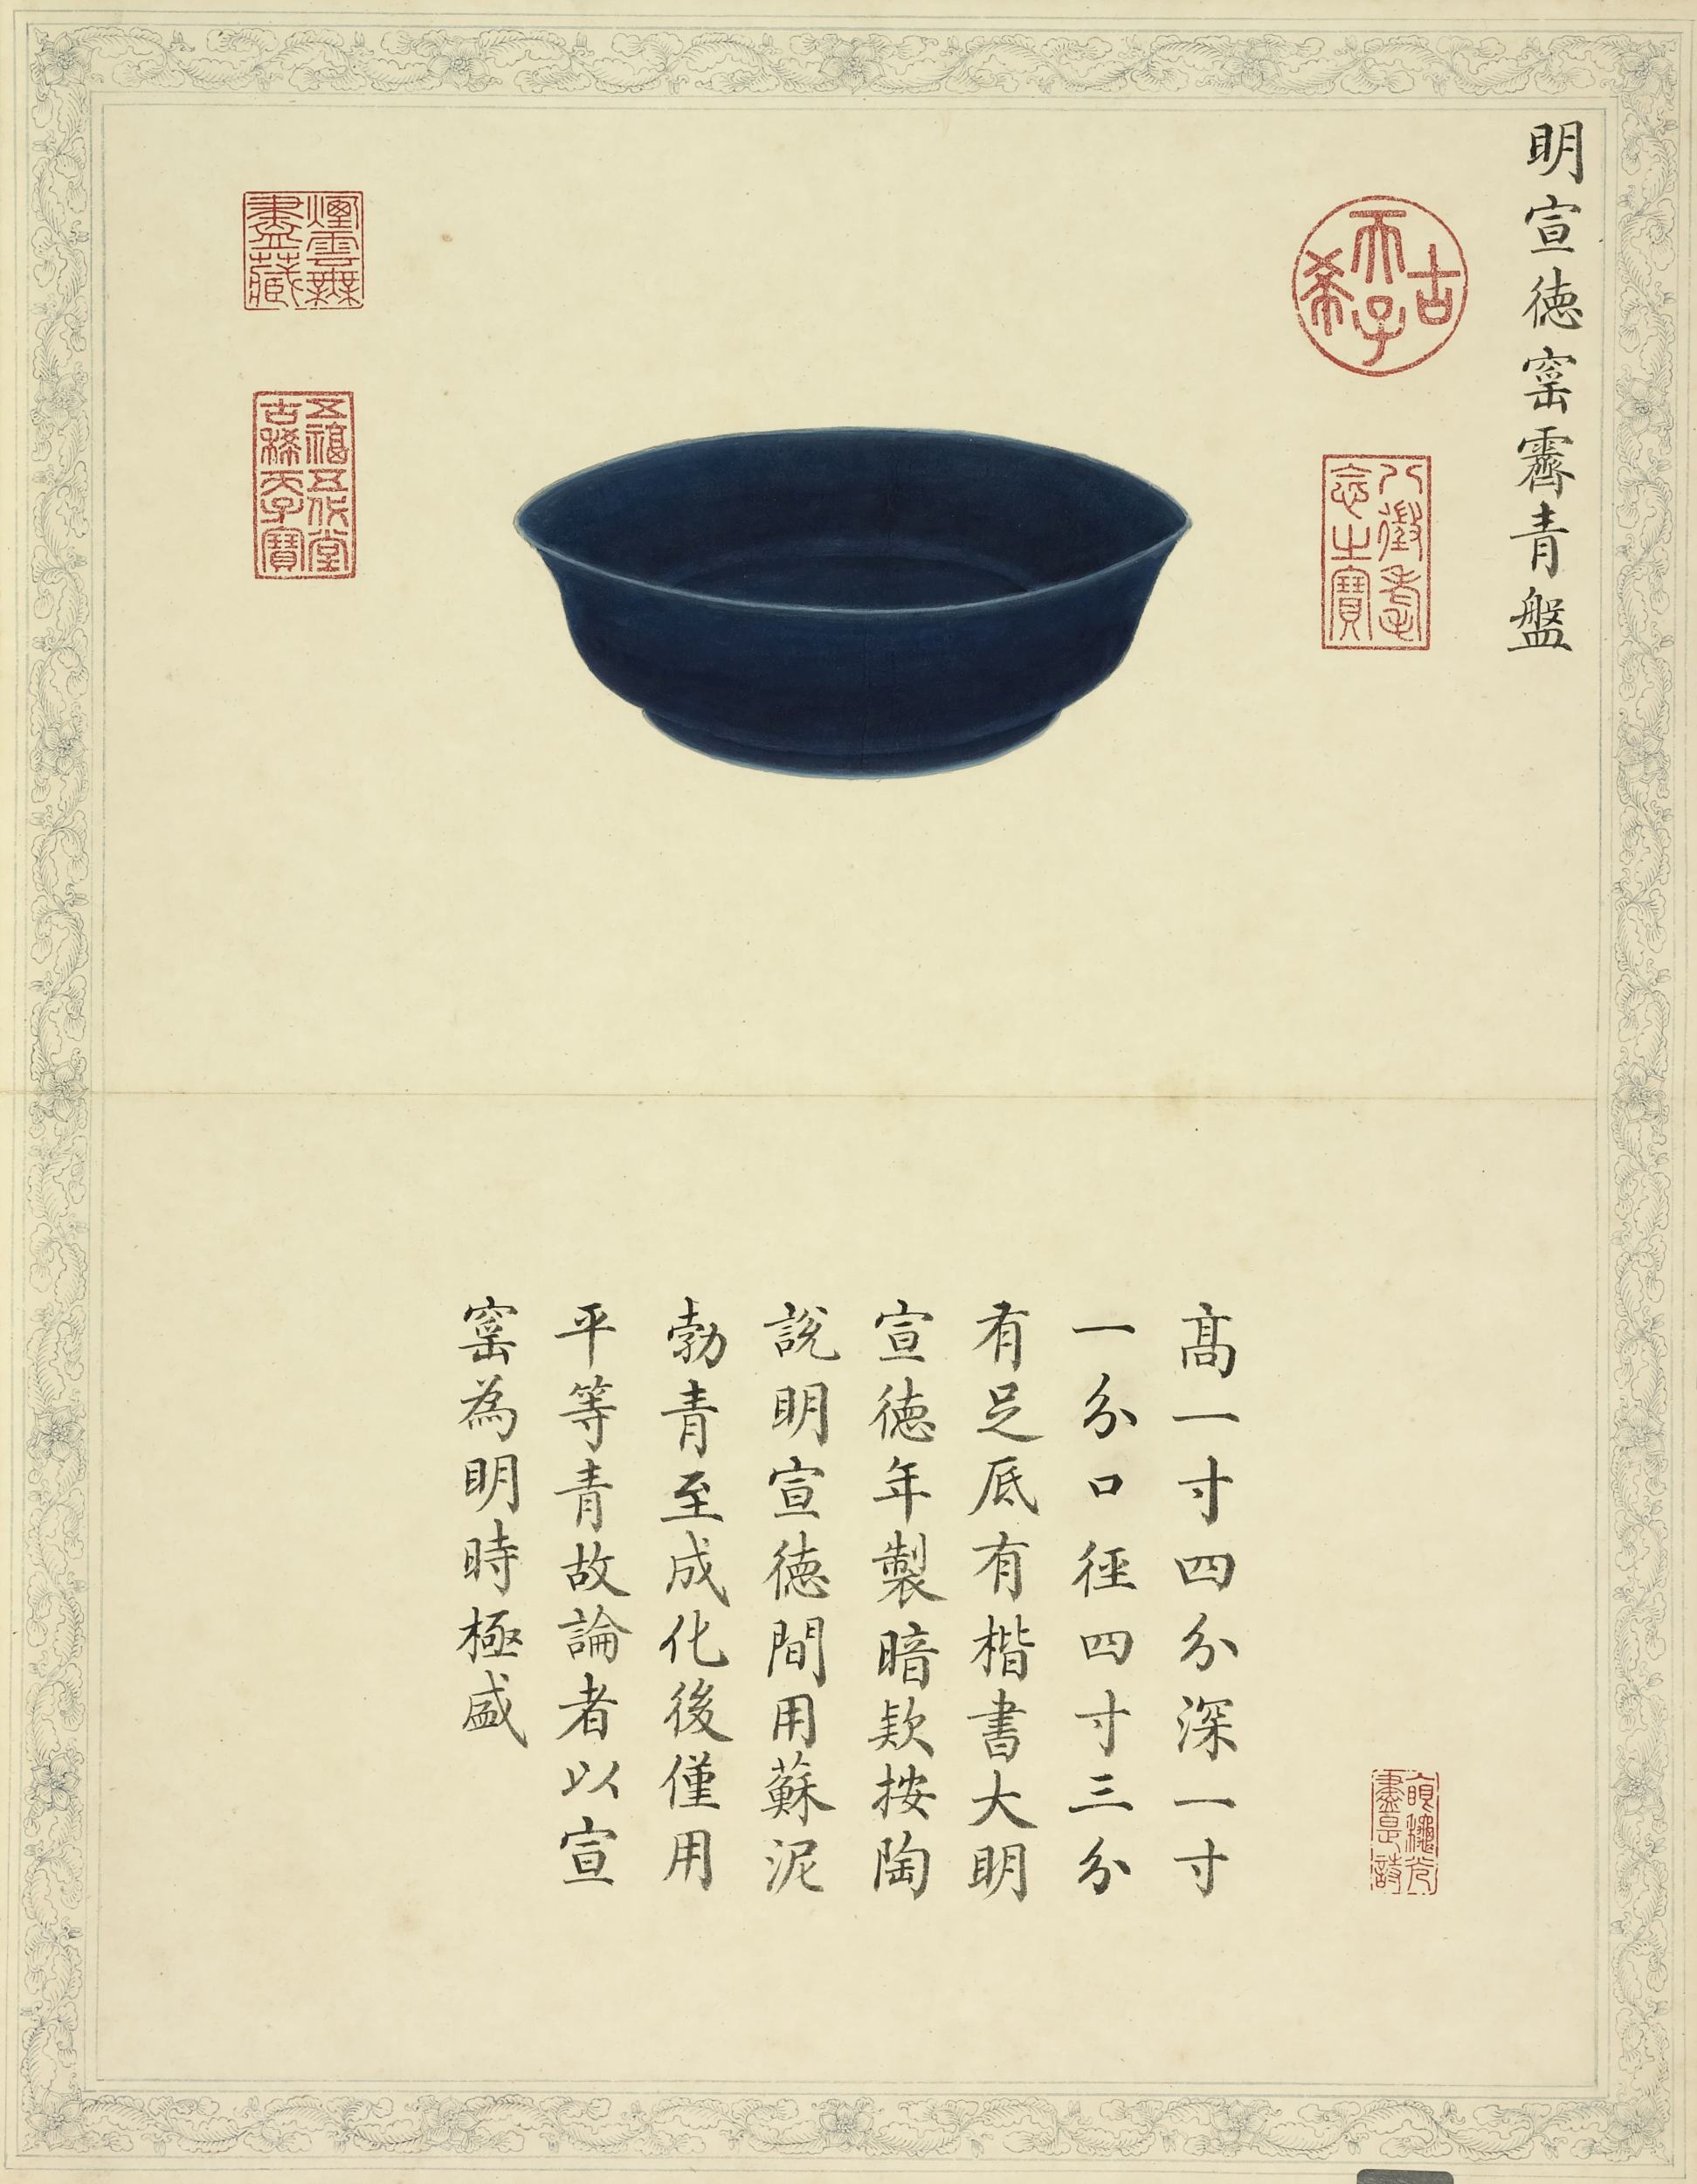 明宣徳窯霽青盤
古希天子
八徵耄念之寶
煙雲無盡藏
五福五代堂古稀天子寶
高一寸四分深一寸
一分口徑四寸三分
有足底有楷書大明
宣徳年製暗款按陶
說明宣徳間用蘇泥
勃青至成化後僅用
平等青故論者以宣
窯為明時極盛